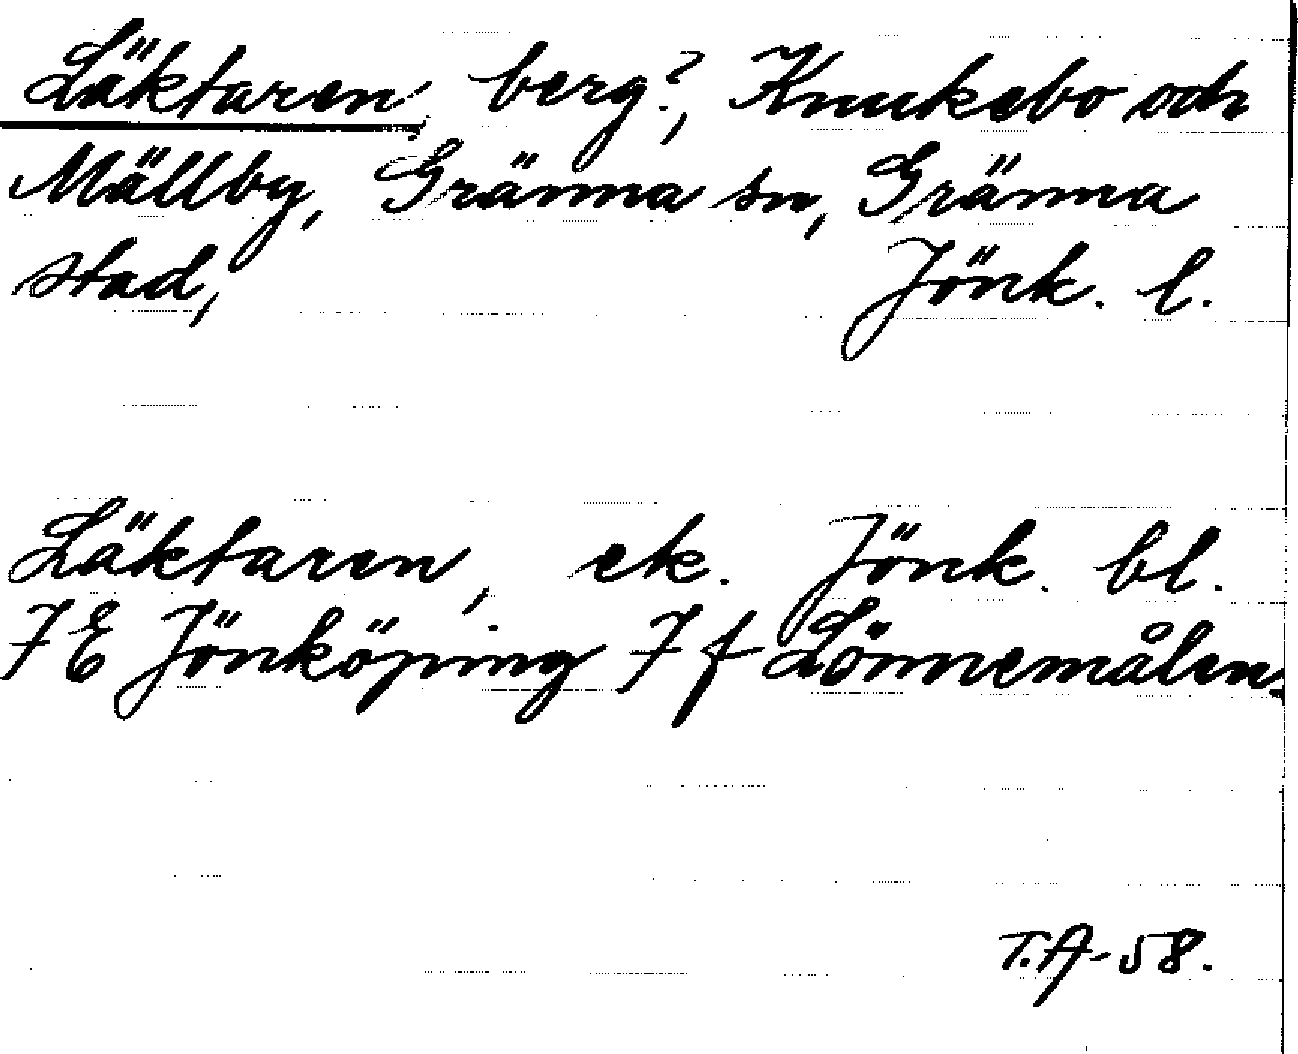 Läktaren, berg?, Knukebo och
Mällby, Gränna sn, Gränna
stad, Jönk. l.
Läktaren, ek. Jönk. bl.
7E Jönköping 7f Lönnemålen.
T.A-58.